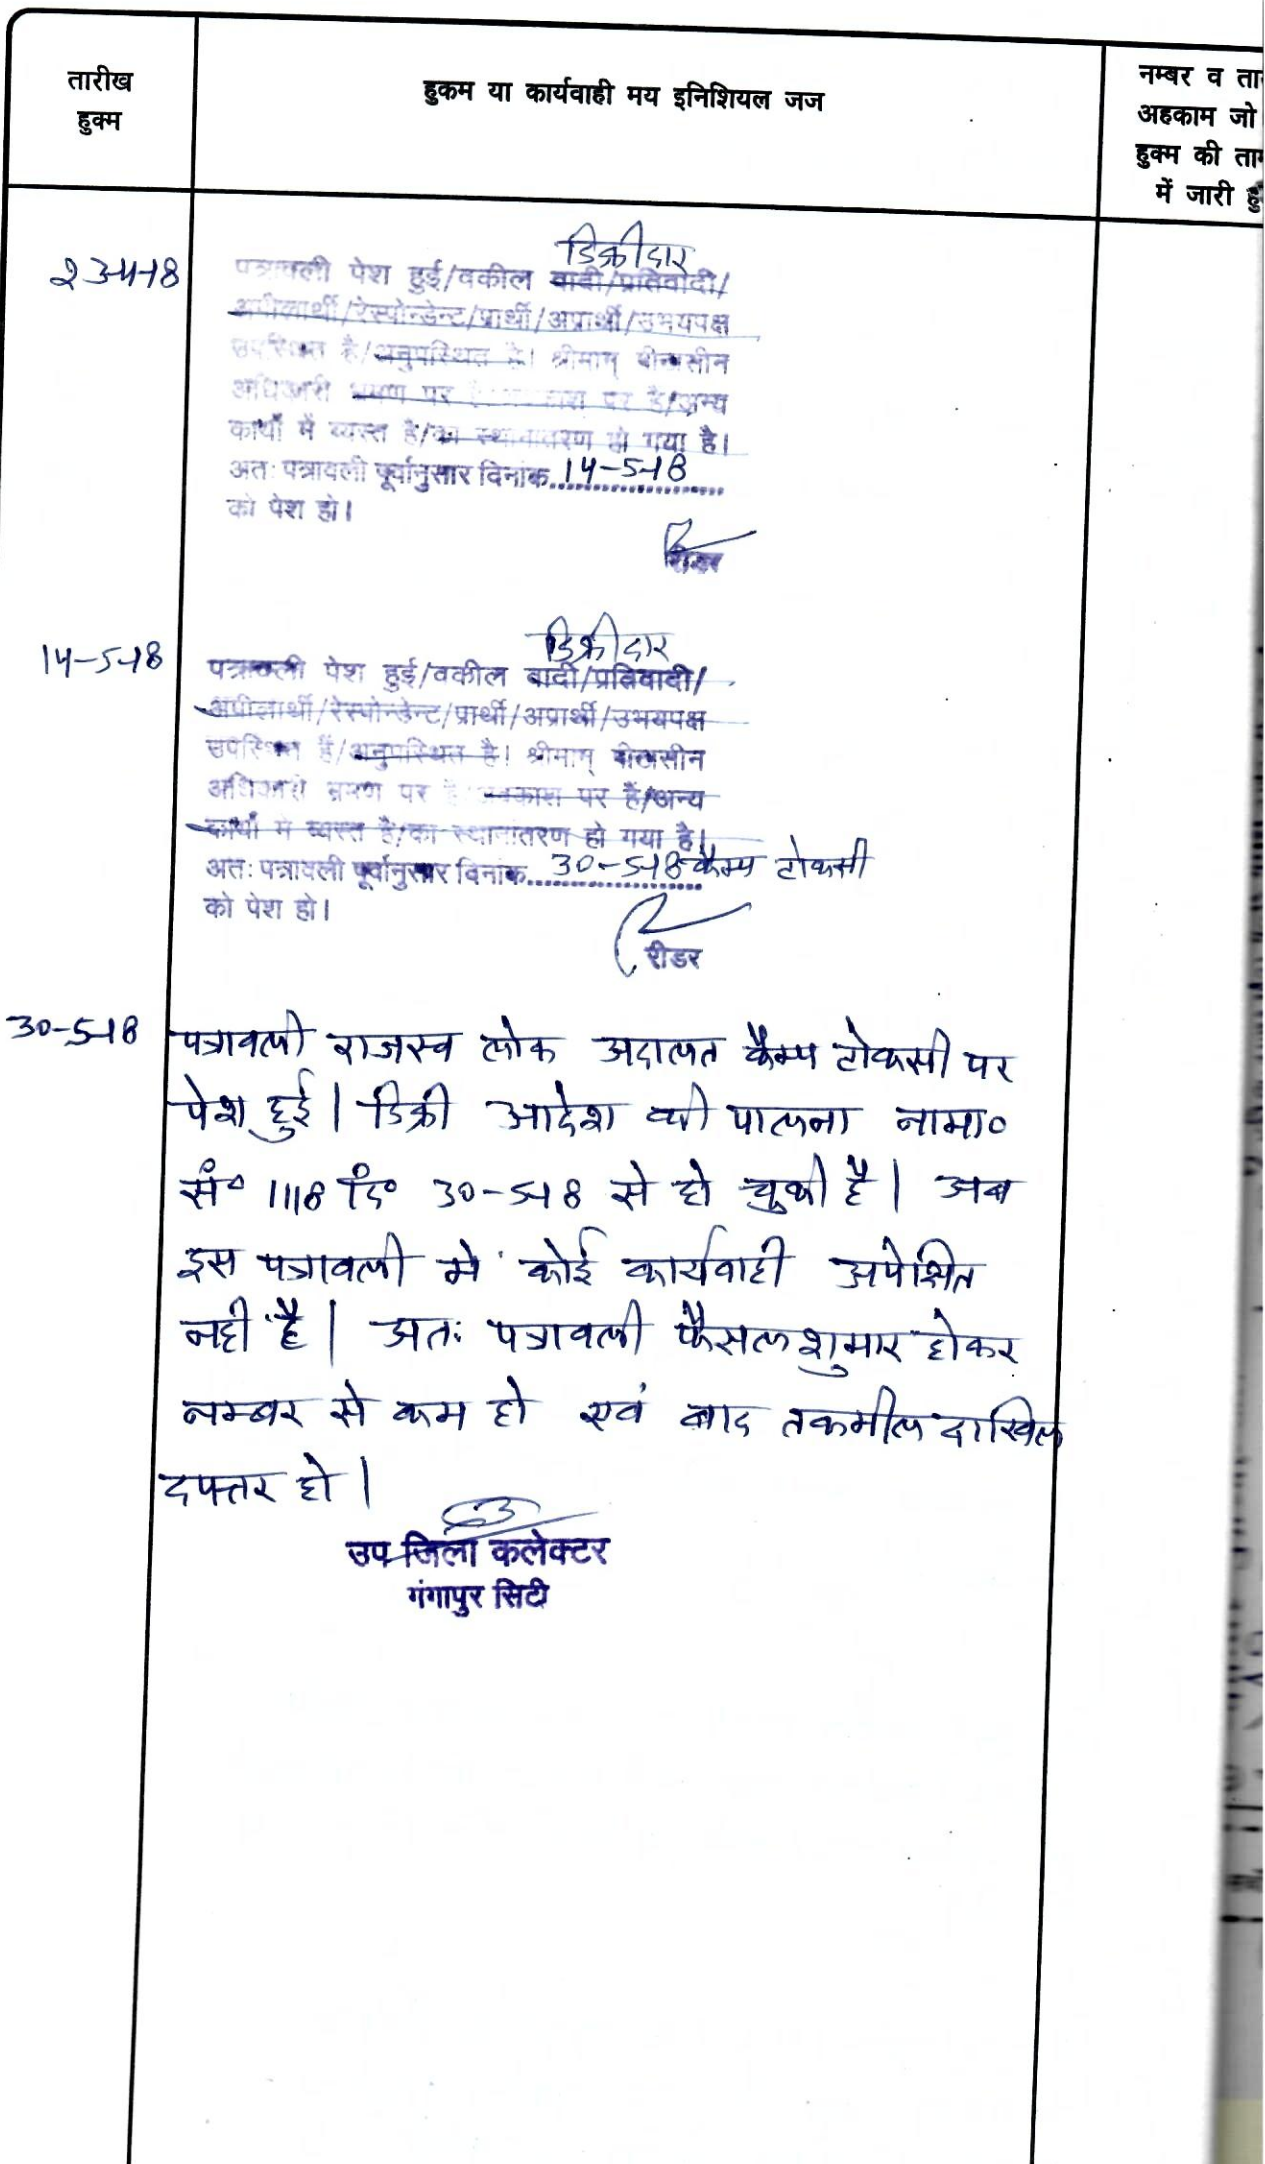 तारीख
हुक्म
हुकम या कार्यवाही मय इनिशियल जज
नम्बर व ता
अहकाम जो
हुक्म की ता
में जारी हु
23-4-18
डिक्रीदार
पत्रावली पेश हुई/वकील वादी/प्रतिवादी/
अपीलार्थी/रेस्पोन्डेन्ट/प्रार्थी/अप्रार्थी/उभयपक्ष
उपस्थित है/अनुपस्थित है। श्रीमान् पीठासीन
अधिकारी भ्रमण पर है/अवकाश पर है/अन्य
कार्यों में व्यस्त है/का स्थानांतरण हो गया है।
अतः पत्रावली पूर्वानुसार दिनांक 14-5-18
को पेश हो।
रीडर
14-5-18
डिक्रीदार
पत्रावली पेश हुई/वकील वादी/प्रतिवादी/
अपीलार्थी/रेस्पोन्डेन्ट/प्रार्थी/अप्रार्थी/उभयपक्ष
उपस्थित है/अनुपस्थित है। श्रीमान् पीठासीन
अधिकारी भ्रमण पर है/अवकाश पर है/अन्य
कार्यों में व्यस्त है/का स्थानांतरण हो गया है।
अतः पत्रावली पूर्वानुसार दिनांक 30-5-18 कैम्प टोकसी
को पेश हो।
रीडर
30-5-18
पत्रावली राजस्व लोक अदालत कैम्प टोकसी पर
पेश हुई। डिक्री आदेश की पालना नामा०
सं० 1118 दि० 30-5-18 से हो चुकी है। अब
इस पत्रावली में कोई कार्यवाही अपेक्षित
नही है। अतः पत्रावली फैसल शुमार होकर
नम्बर से कम हो एवं बाद तकमील दाखिल
दफ्तर हो।
उप जिला कलेक्टर
गंगापुर सिटी